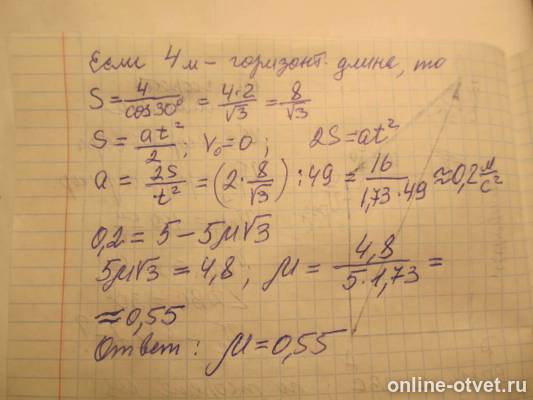 Если 4 м - горизонт. длина, то
S = 4/cos30° = 4·2/√3 = 8/√3
S = at²/2; V₀=0; 2S=at²
a = 2S/t² = (2·8/√3):49 = 16/1,73·49 ≈0,2 м/с²
0,2 = 5 - 5μ√3
5μ√3 = 4,8; μ = 4,8/5·1,73 =
≈0,55
Ответ: μ=0,55
online-otvet.ru